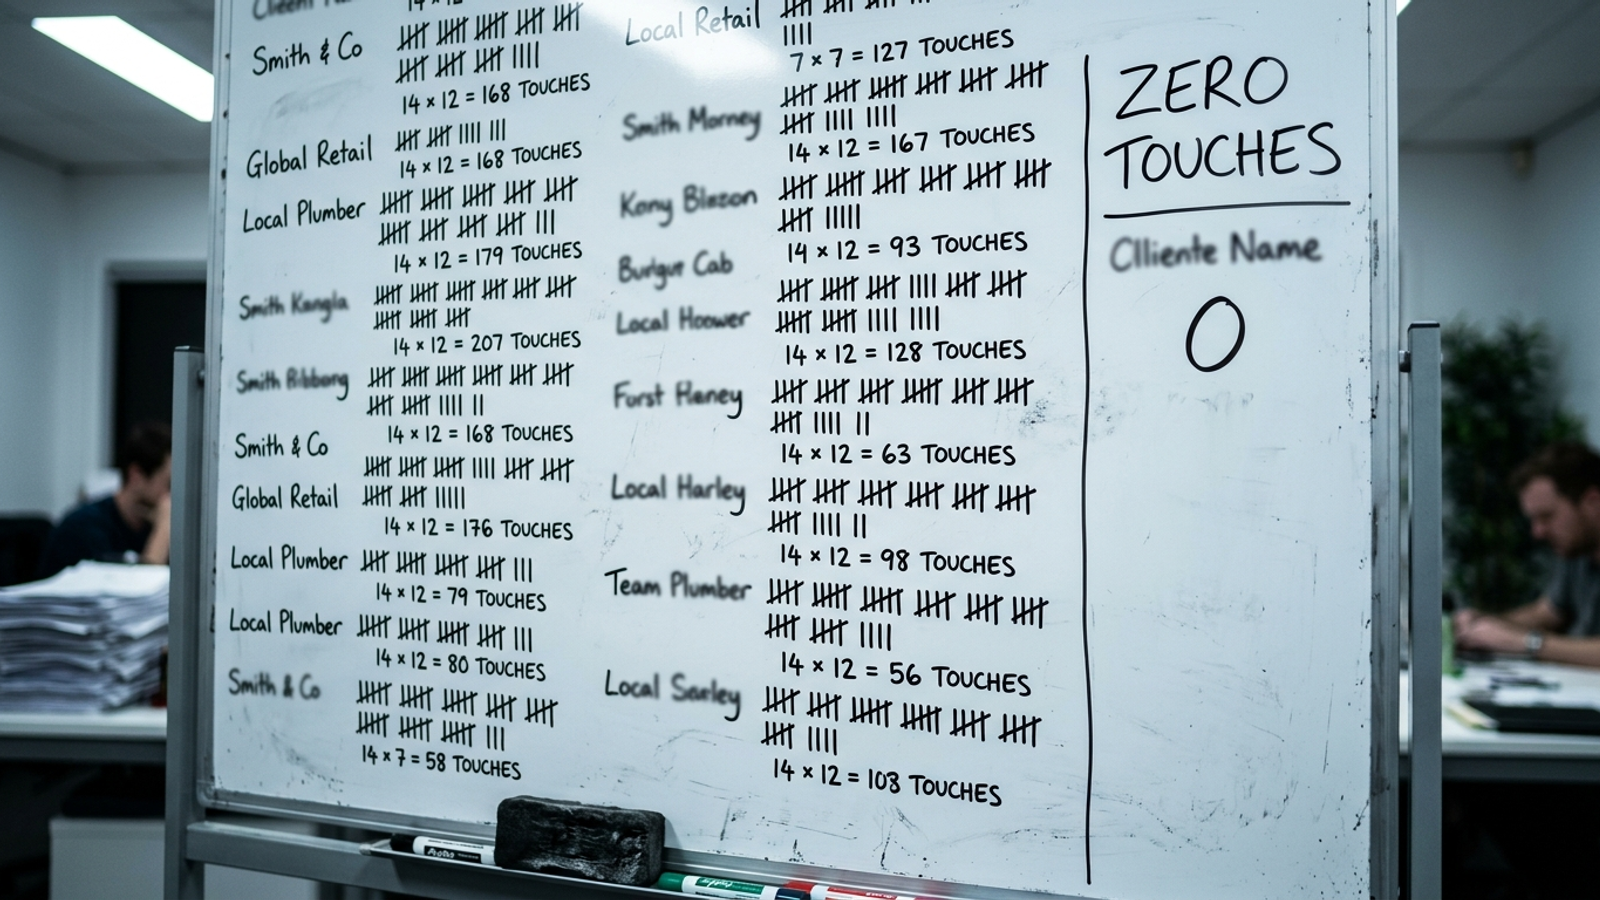 Smith & Co
14 × 12 = 168 TOUCHES
Global Retail
14 × 12 = 168 TOUCHES
Local Plumber
14 × 12 = 179 TOUCHES
Smith Kangla
14 × 12 = 207 TOUCHES
Smith
14 × 12 = 168 TOUCHES
Smith & Co
Global Retail
14 × 12 = 176 TOUCHES
Local Plumber
14 × 12 = 79 TOUCHES
Local Plumber
14 × 12 = 80 TOUCHES
Smith & Co
14 × 7 = 58 TOUCHES
Local Retail
7 × 7 = 127 TOUCHES
Smith Morney
14 × 12 = 167 TOUCHES
Kony Blezon
14 × 12 = 93 TOUCHES
Cab
Local Hoower
14 × 12 = 128 TOUCHES
Furst Haney
14 × 12 = 63 TOUCHES
Local Harley
14 × 12 = 98 TOUCHES
Team Plumber
14 × 12 = 56 TOUCHES
Local Sarley
14 × 12 = 103 TOUCHES
ZERO
TOUCHES
Clliente Name
0